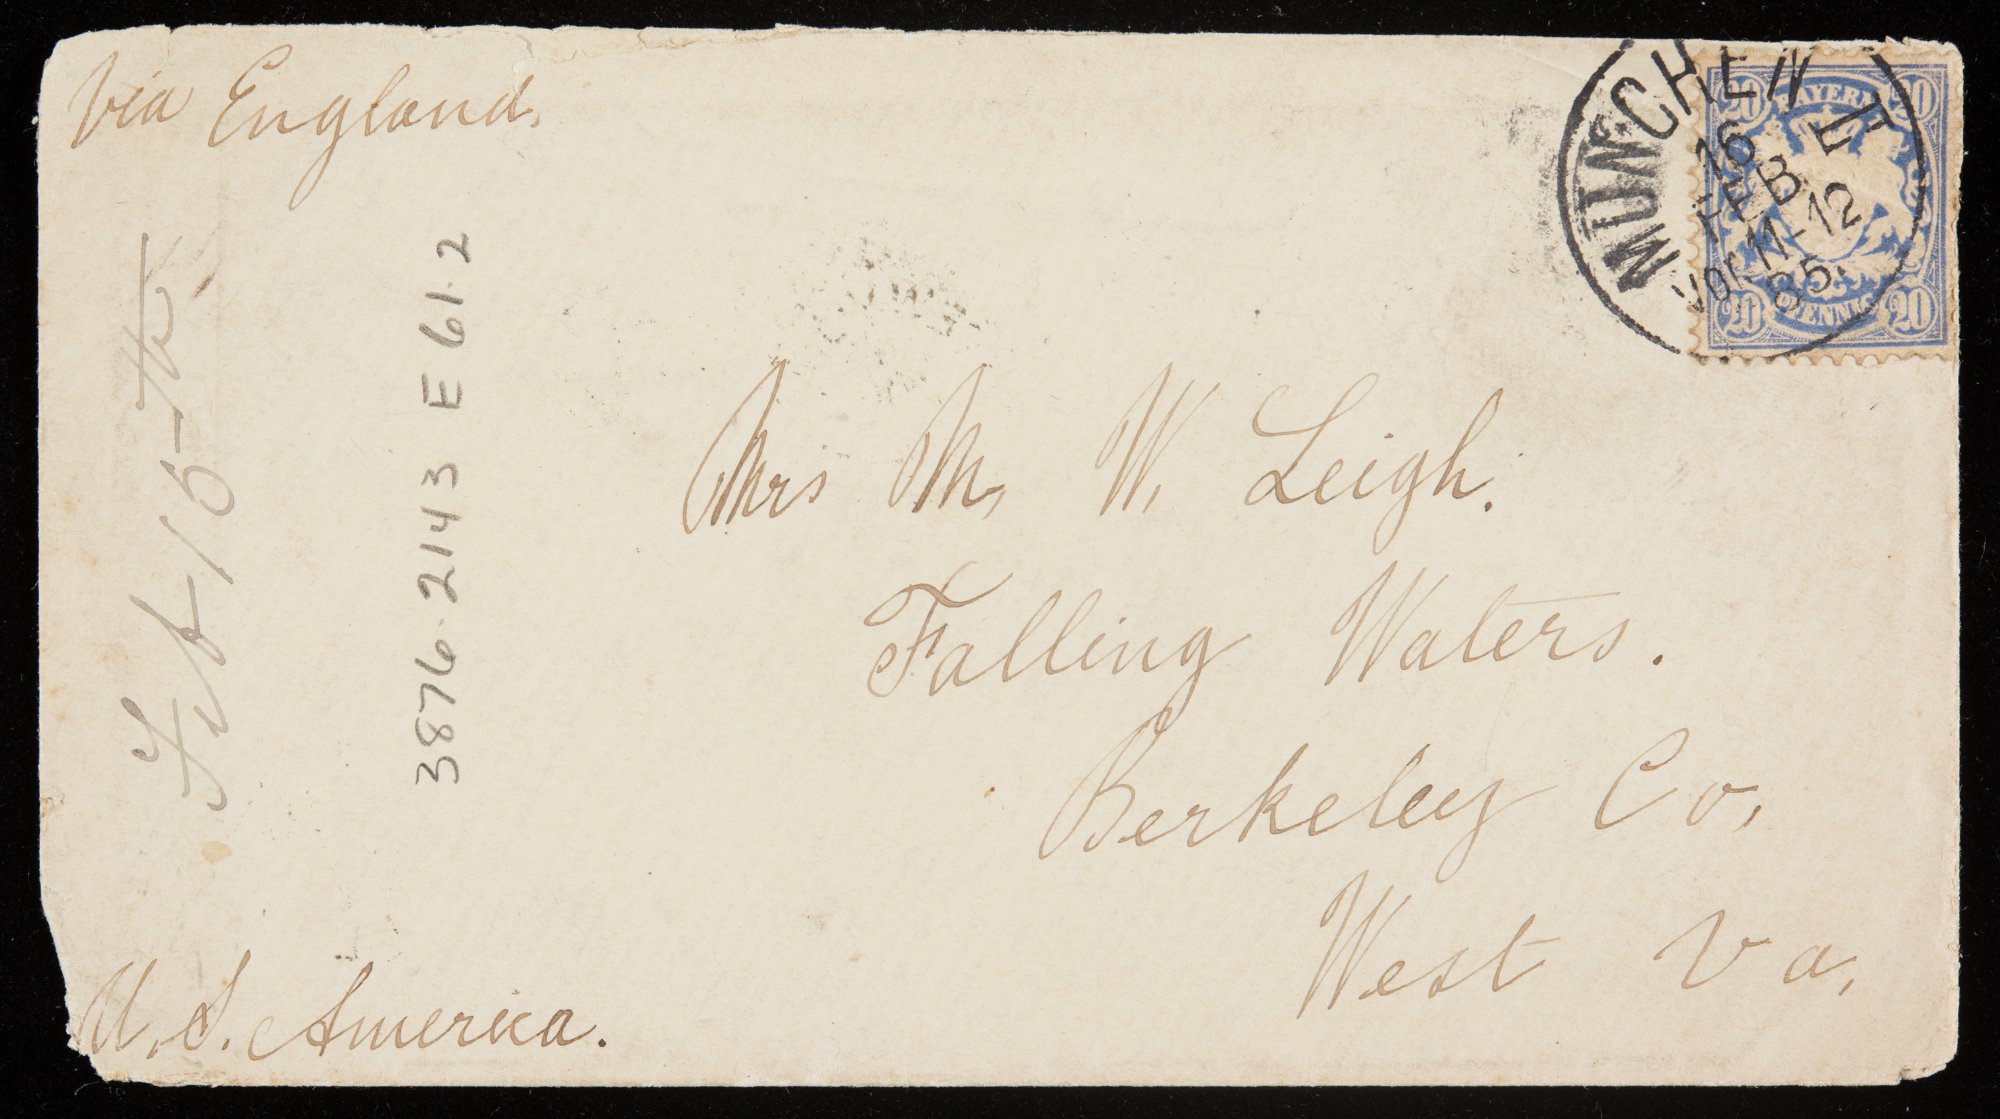 Via England.
MÜNCHEN I
16
FEB
Vor. 11-12
85.
20 BAYERN 20
20 PFENNIG 20
Feb-15-th
3876.2143 E 61.2
Mrs M. W. Leigh.
Falling Waters.
Berkeley Co.
West Va.
U. S. America.